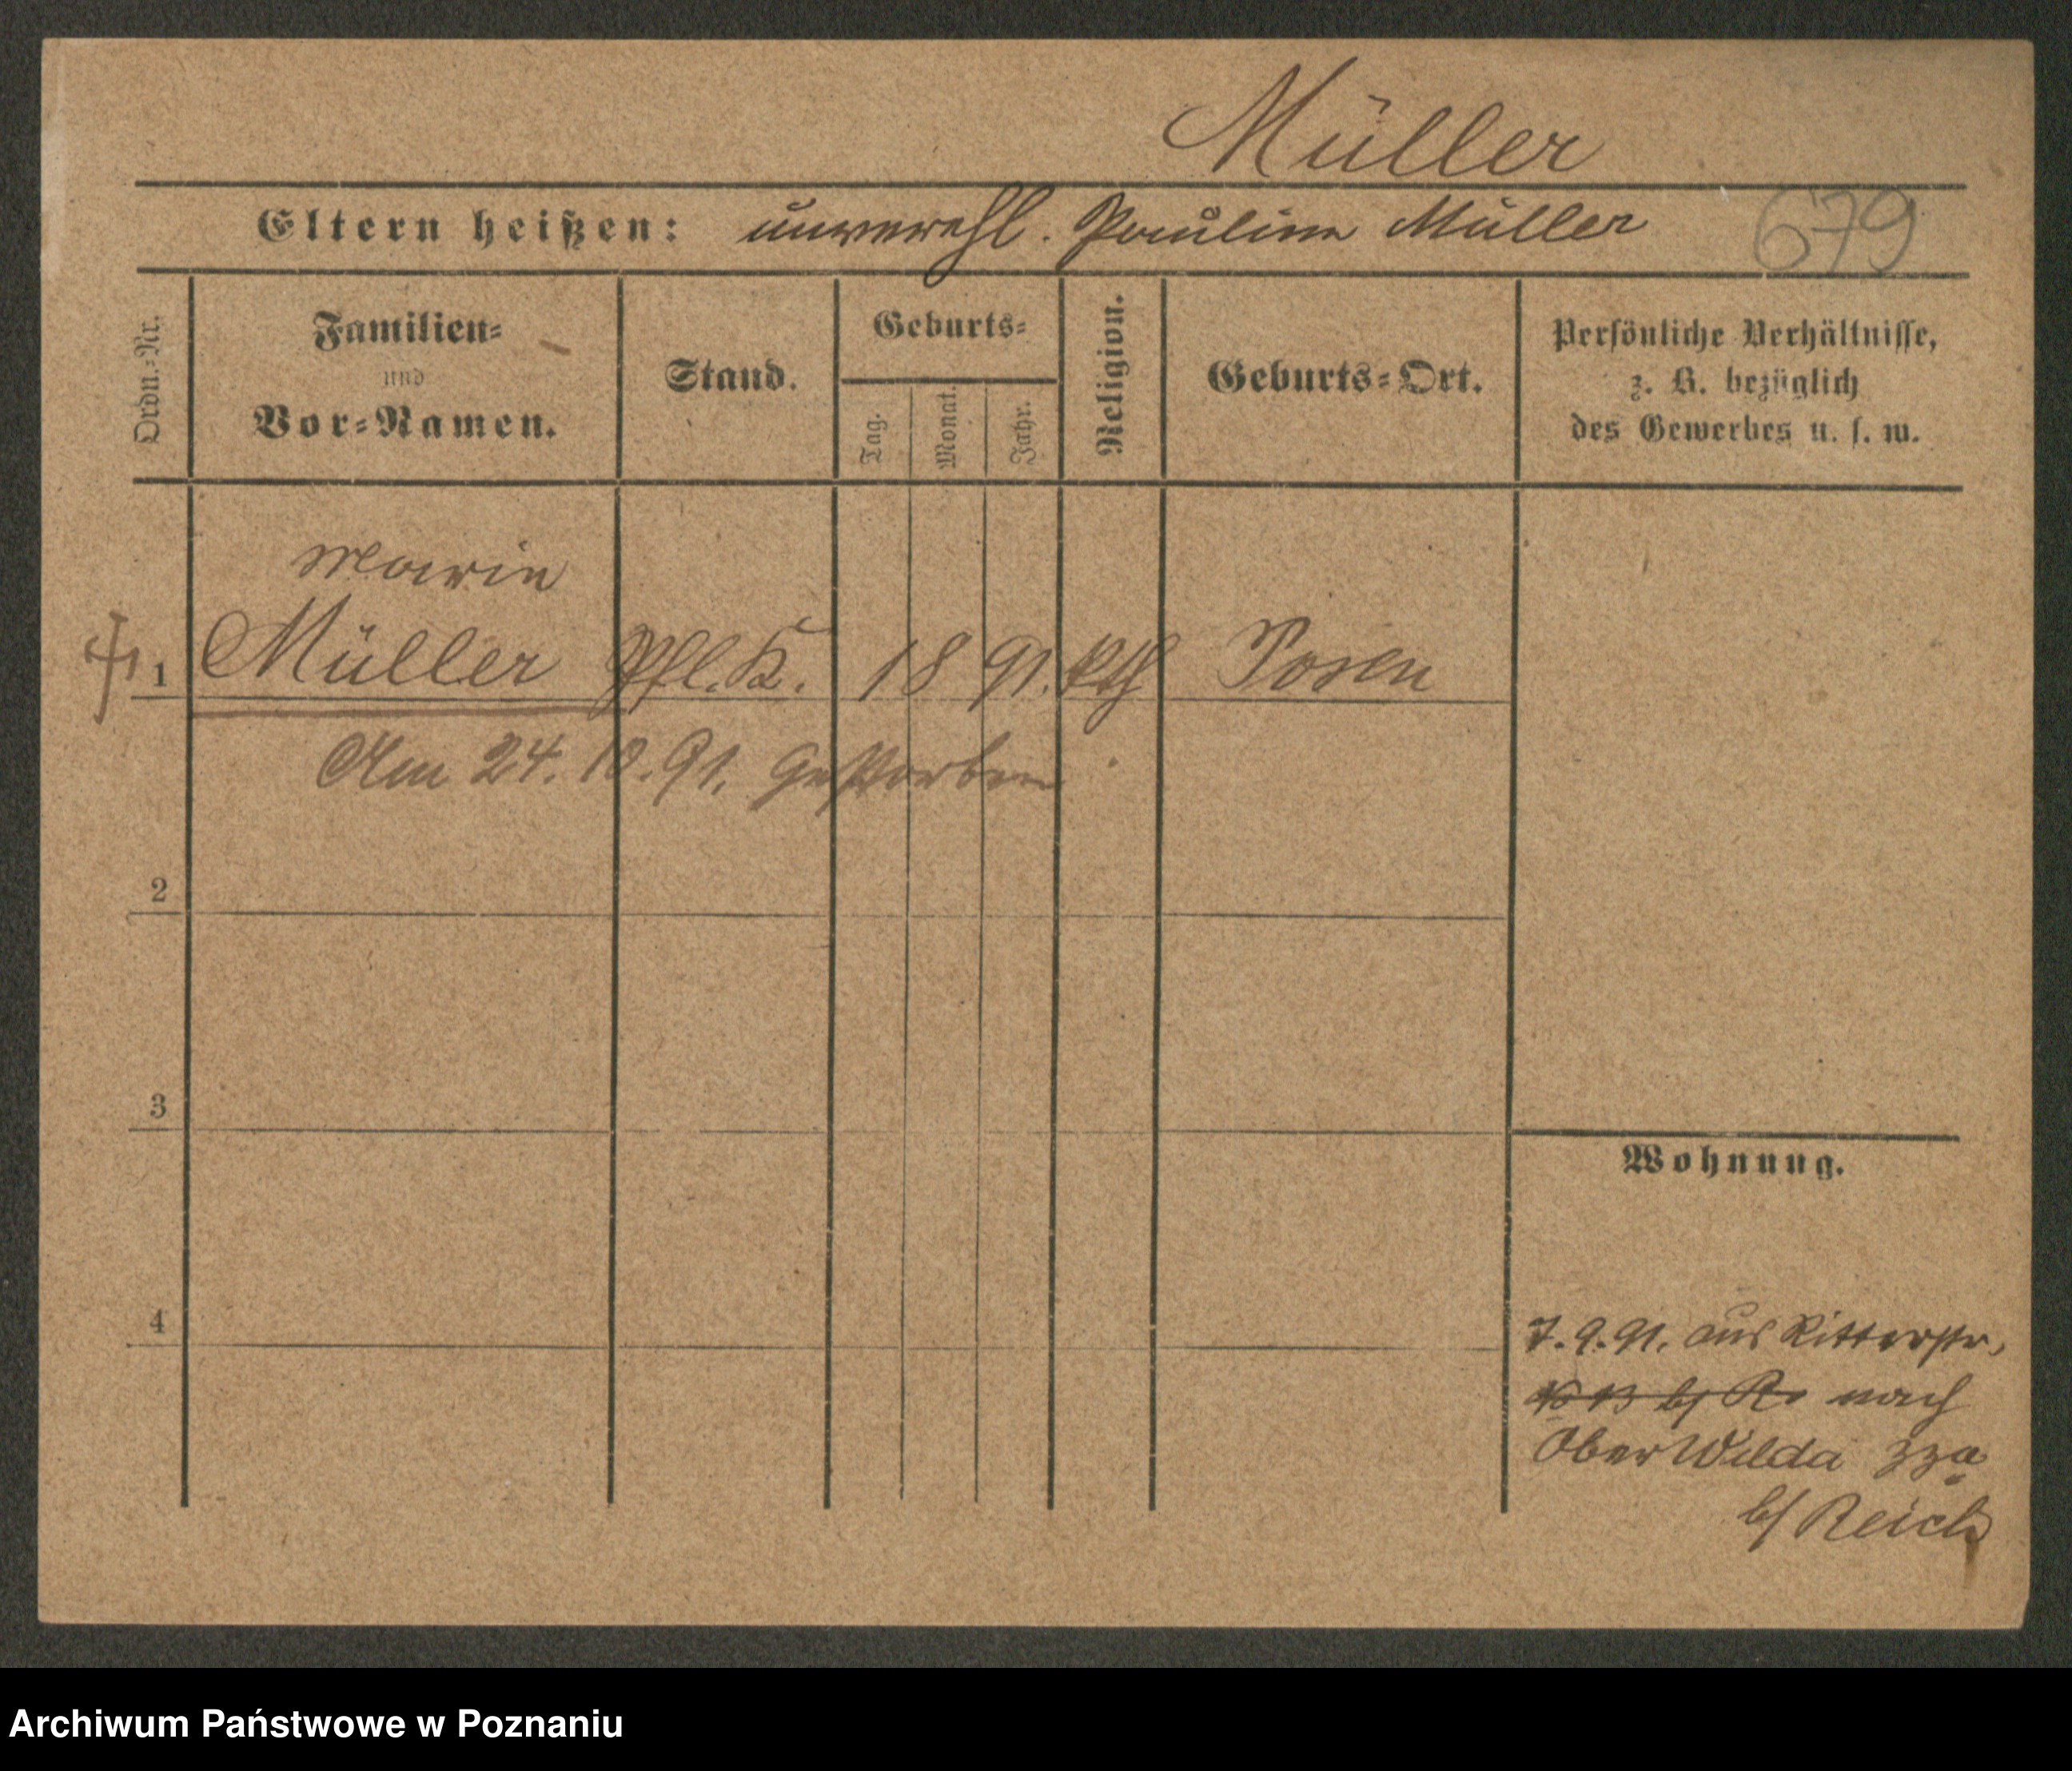 Müller
Eltern heißen: unverehl. Pauline Müller 679
Ordn.=Nr.
Familien=
und
Vor=Namen.
Stand.
Geburts=
Tag.
Monat.
Jahr.
Religion.
Geburts=Ort.
Persönliche Verhältnisse,
z. B. bezüglich
des Gewerbes u. s. w.
Marie
1 Müller Pfl. K. 1 8 91. kth Posen
Am 24. 10. 91. gestorben.
2
3
4
Wohnung.
7.9.91. aus Ritterstr,
nach
Ober Wilda
b/ Reich
Archiwum Państwowe w Poznaniu